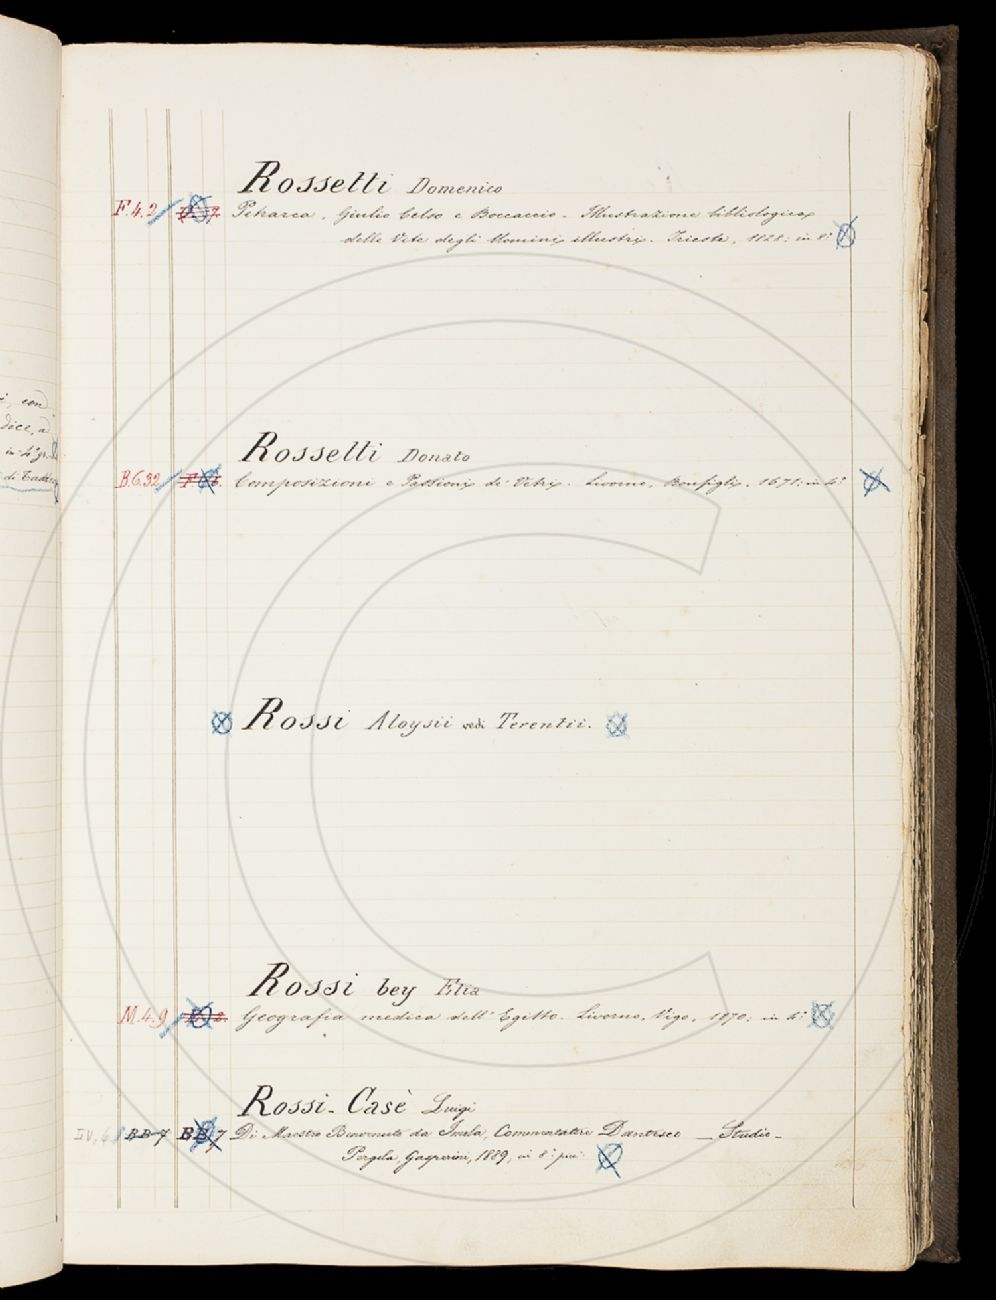 Rossetti Domenico
F.4.2 Petrarca, Giulio Celso e Boccaccio. Illustrazione bibliologica
delle Vite degli Uomini illustri. Trieste, 1828; in 8°
i, con
dice, a
in 4° gr.
Rossetti Donato
B.6.32 Composizioni e Passioni de' Vetri. Livorno, Bonfigli, 1671; in 4°
Rossi Aloysii vedi Terentii.
Rossi bey Elia
M.4.9 Geografia medica dell' Egitto. Livorno, Vigo, 1870; in 4°
Rossi-Casè Luigi
BB-7 BB.7 Di Maestro Benvenuto da Imola, Commentatore Dantesco _ Studio _
Pergola, Gasperini, 1889, in 8°